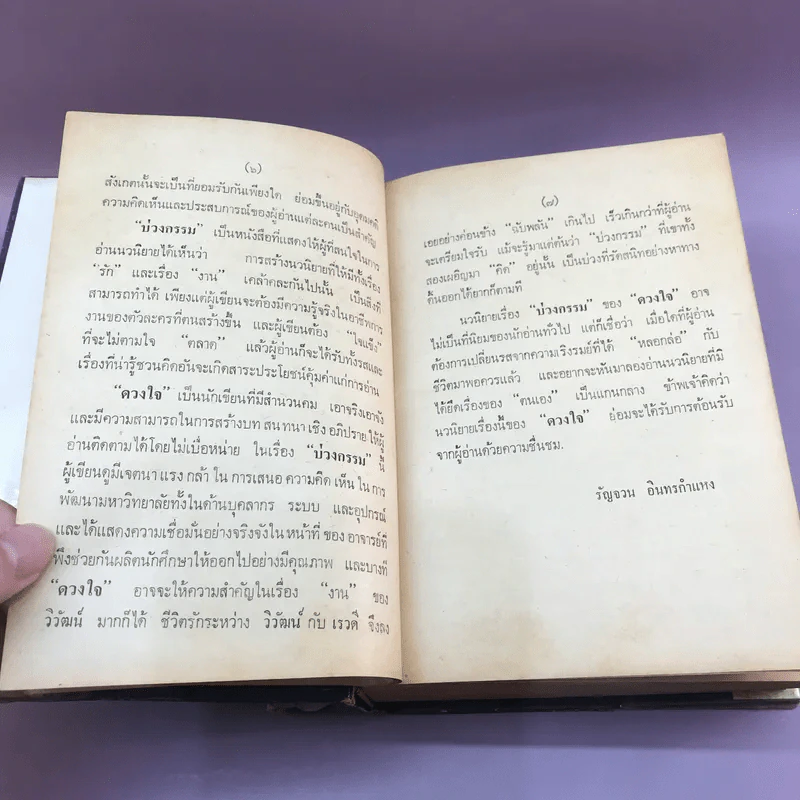 (๖)
สังเกตนั้นจะเป็นที่ยอมรับกันเพียงใด ย่อมขึ้นอยู่กับอุดมคติ
ความคิดเห็นและประสบการณ์ของผู้อ่านแต่ละคนเป็นสำคัญ
“บ่วงกรรม” เป็นหนังสือที่แสดงให้ผู้ที่สนใจในการ
อ่านนวนิยายได้เห็นว่า การสร้างนวนิยายที่ให้มีทั้งเรื่อง
“รัก” และเรื่อง “งาน” เคล้าคละกันไปนั้น เป็นสิ่งที่
สามารถทำได้ เพียงแต่ผู้เขียนจะต้องมีความรู้จริงในอาชีพการ
งานของตัวละครที่ตนสร้างขึ้น และผู้เขียนต้อง “ใจแข็ง”
ที่จะไม่ตามใจ “ตลาด” แล้วผู้อ่านก็จะได้รับทั้งรสและ
เรื่องที่น่ารู้ชวนคิดอันจะเกิดสาระประโยชน์คุ้มค่าแก่การอ่าน
“ดวงใจ” เป็นนักเขียนที่มีสำนวนคม เอาจริงเอาจัง
และมีความสามารถในการสร้างบท สนทนา เชิง อภิปราย ให้ผู้
อ่านติดตามได้โดยไม่เบื่อหน่าย ในเรื่อง “บ่วงกรรม” นี้
ผู้เขียนดูมีเจตนา แรง กล้า ใน การเสนอ ความคิด เห็น ใน การ
พัฒนามหาวิทยาลัยทั้งในด้านบุคลากร ระบบ และอุปกรณ์
และได้แสดงความเชื่อมั่นอย่างจริงจังใน หน้าที่ ของ อาจารย์ที่
พึงช่วยกันผลิตนักศึกษาให้ออกไปอย่างมีคุณภาพ และบางที
“ดวงใจ” อาจจะให้ความสำคัญในเรื่อง “งาน” ของ
วิวัฒน์ มากก็ได้ ชีวิตรักระหว่าง วิวัฒน์ กับ เรวดี จึงลง
(๗)
เอยอย่างค่อนข้าง “ฉับพลัน” เกินไป เร็วเกินกว่าที่ผู้อ่าน
จะเตรียมใจรับ แม้จะรู้มาแต่ต้นว่า “บ่วงกรรม” ที่เขาทั้ง
สองเผอิญมา “คิด” อยู่นั้น เป็นบ่วงที่รัดสนิทอย่างหาทาง
ดิ้นออกได้ยากก็ตามที
นวนิยายเรื่อง “บ่วงกรรม” ของ “ดวงใจ” อาจ
ไม่เป็นที่นิยมของนักอ่านทั่วไป แต่ก็เชื่อว่า เมื่อใดที่ผู้อ่าน
ต้องการเปลี่ยนรสจากความเริงรมย์ที่ได้ “หลอกล่อ” กับ
ชีวิตมาพอควรแล้ว และอยากจะหันมาลองอ่านนวนิยายที่มี
ได้ยึดเรื่องของ “ตนเอง” เป็นแกนกลาง ข้าพเจ้าคิดว่า
นวนิยายเรื่องนี้ของ “ดวงใจ” ย่อมจะได้รับการต้อนรับ
จากผู้อ่านด้วยความชื่นชม.
รัญจวน อินทรกำแหง